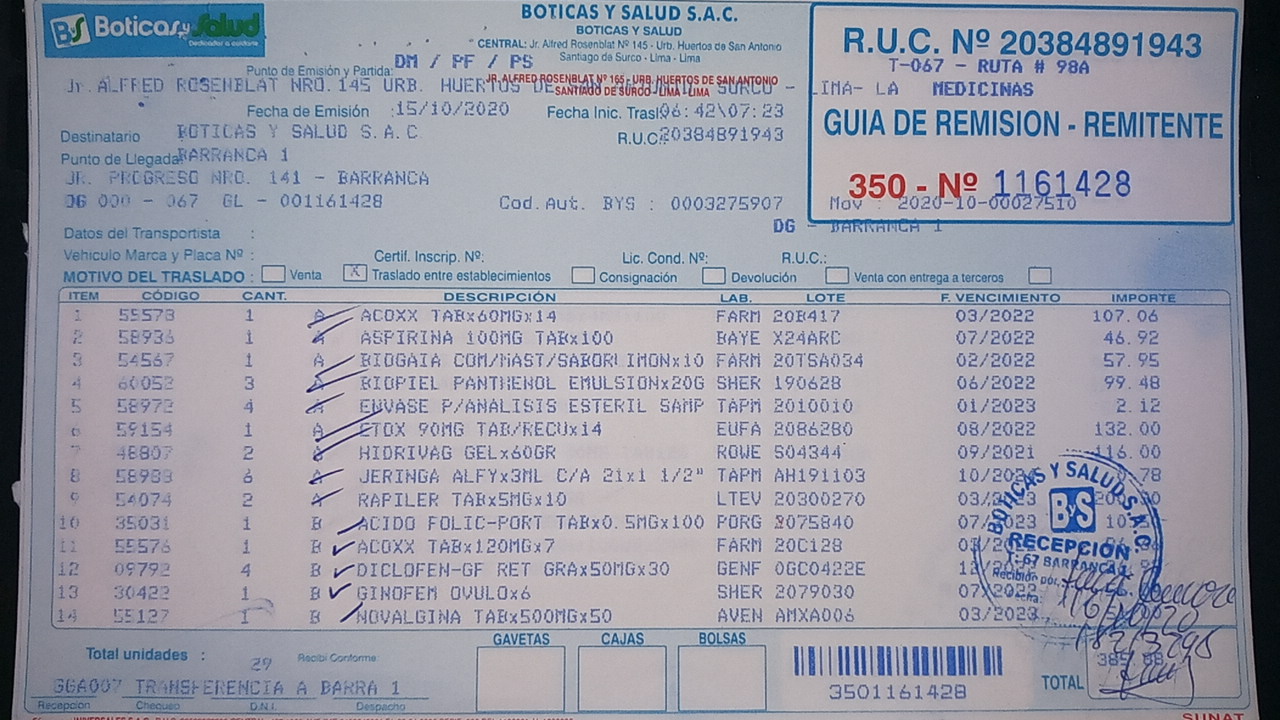 BS Boticas y Salud
Dedicados a cuidarte
BOTICAS Y SALUD S.A.C.
BOTICAS Y SALUD
CENTRAL: Jr. Alfred Rosenblat Nº 145 - Urb. Huertos de San Antonio
Santiago de Surco - Lima - Lima
R.U.C. Nº 20384891943
T-067 - RUTA # 98A
MEDICINAS
GUIA DE REMISION - REMITENTE
350 - Nº 1161428
Punto de Emisión y Partida: DM / PF / PS
JR. ALFRED ROSENBLAT Nº 165 - URB. HUERTOS DE SAN ANTONIO
SANTIAGO DE SURCO - LIMA - LIMA
Jr. ALFRED ROSENBLAT NRO. 145 URB. HUERTOS DE SURCO - LIMA- LA
Fecha de Emisión :15/10/2020 Fecha Inic. Trasl 06:42\07:23
Destinatario BOTICAS Y SALUD S.A.C R.U.C.:20384891943
Punto de Llegada: BARRANCA 1
JR. PROGRESO NRO. 141 - BARRANCA
DG 000 - 067 GL - 001161428 Cod.Aut. BYS : 0003275907 Mov : 2020-10-00027510
DG - BARRANCA 1
Datos del Transportista :
Vehiculo Marca y Placa Nº : Certif. Inscrip. Nº: Lic. Cond. Nº: R.U.C.:
MOTIVO DEL TRASLADO : Venta X Traslado entre establecimientos Consignación Devolución Venta con entrega a terceros
ITEM CÓDIGO CANT. DESCRIPCIÓN LAB. LOTE F. VENCIMIENTO IMPORTE
1 55573 1 A ACOXX TABx60MGx14 FARM 20B417 03/2022 107.06
2 58936 1 A ASPIRINA 100MG TABx100 BAYE X24ARC 07/2022 46.92
3 54567 1 A BIOGAIA COM/MAST/SABORLIMONx10 FARM 20TSA034 02/2022 57.95
4 60052 3 A BIOPIEL PANTHENOL EMULSIONx20G SHER 190628 06/2022 99.48
5 58972 4 A ENVASE P/ANALISIS ESTERIL SAMP TAPM 2010010 01/2023 2.12
6 59154 1 A ETOX 90MG TAB/RECUx14 EUFA 2086280 08/2022 132.00
7 48807 2 A HIDRIVAG GELx60GR ROWE S04344 09/2021 116.00
8 58983 6 A JERINGA ALFYx3ML C/A 21x1 1/2" TAPM AH191103 10/20 .78
9 54074 2 A RAPILER TABx5MGx10 LTEV 20300270 03/2023
10 35031 1 B ACIDO FOLIC-PORT TABx0.5MGx100 PORG 2075840 07/2023 10
11 55576 1 B ACOXX TABx120MGx7 FARM 20C128
12 09792 4 B DICLOFEN-GF RET GRAx50MGx30 GENF 0GC0422E
13 30422 1 B GINOFEM OVULOx6 SHER 2079030 07/2022
14 55127 1 B NOVALGINA TABx500MGx50 AVEN AMXA006 03/2023
BOTICAS Y SALUD S.A.C.
ByS
RECEPCIÓN
T-67 BARRANCA 1
Recibido por:
Fecha
Total unidades : 29 Recibi Conforme:
GAVETAS CAJAS BOLSAS
GGA007 TRANSFERENCIA A BARRA 1
Recepcion Chequeo D.N.I. Despacho
3501161428
TOTAL
SUNAT